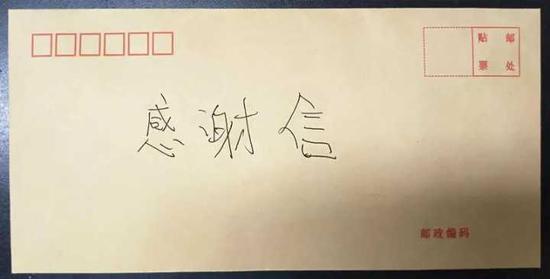 贴 邮
票 处
感谢信
邮政编码